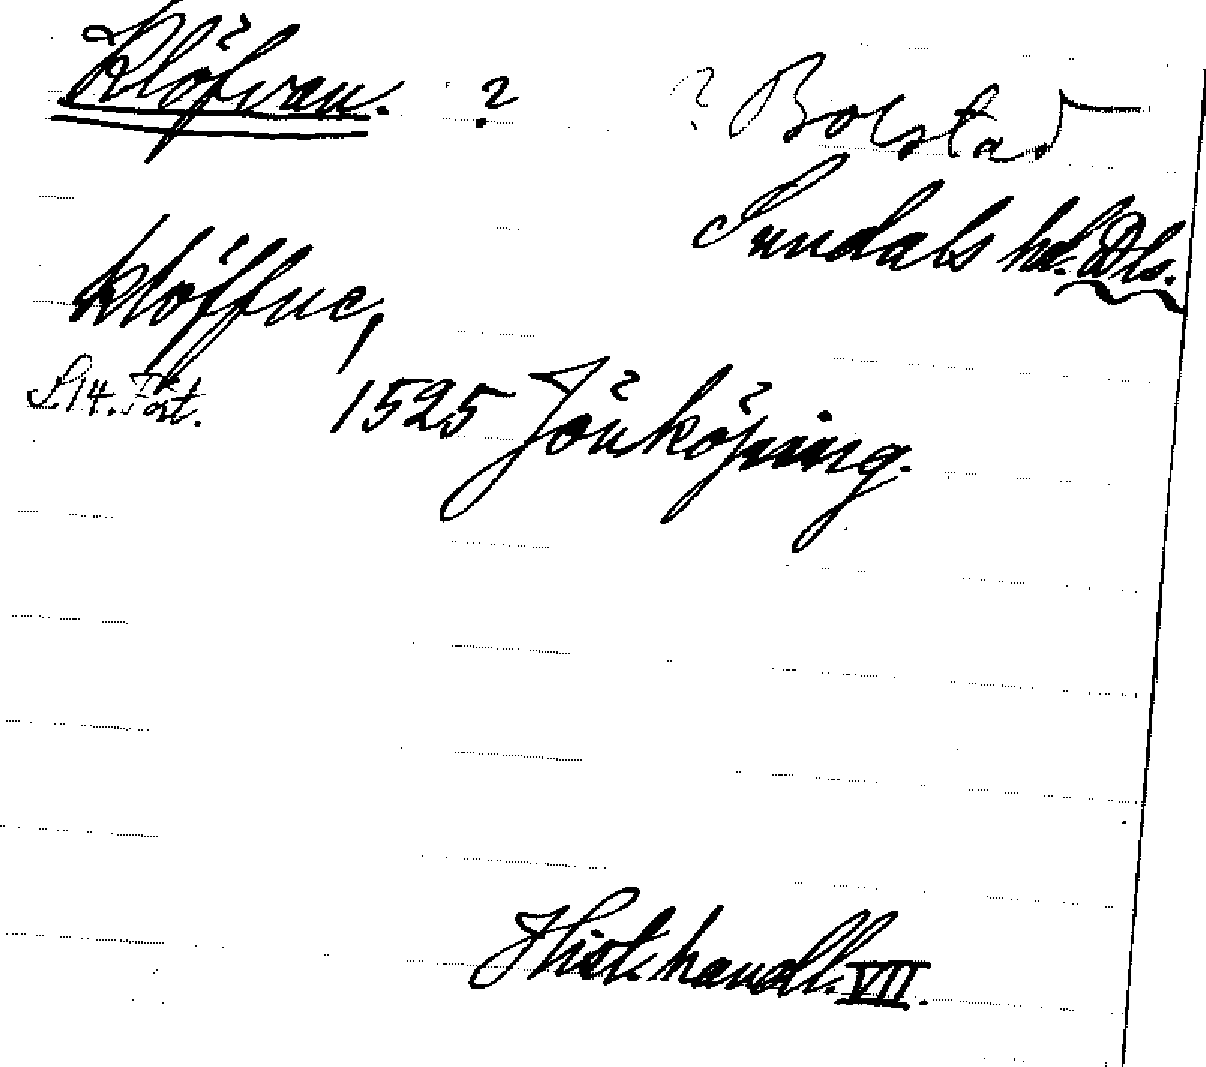 Klöfvan. ? ? Bolstad
Sundals hd. Dls.
Klöffue,
1525 Jönköping.
Hist. handl. VII.